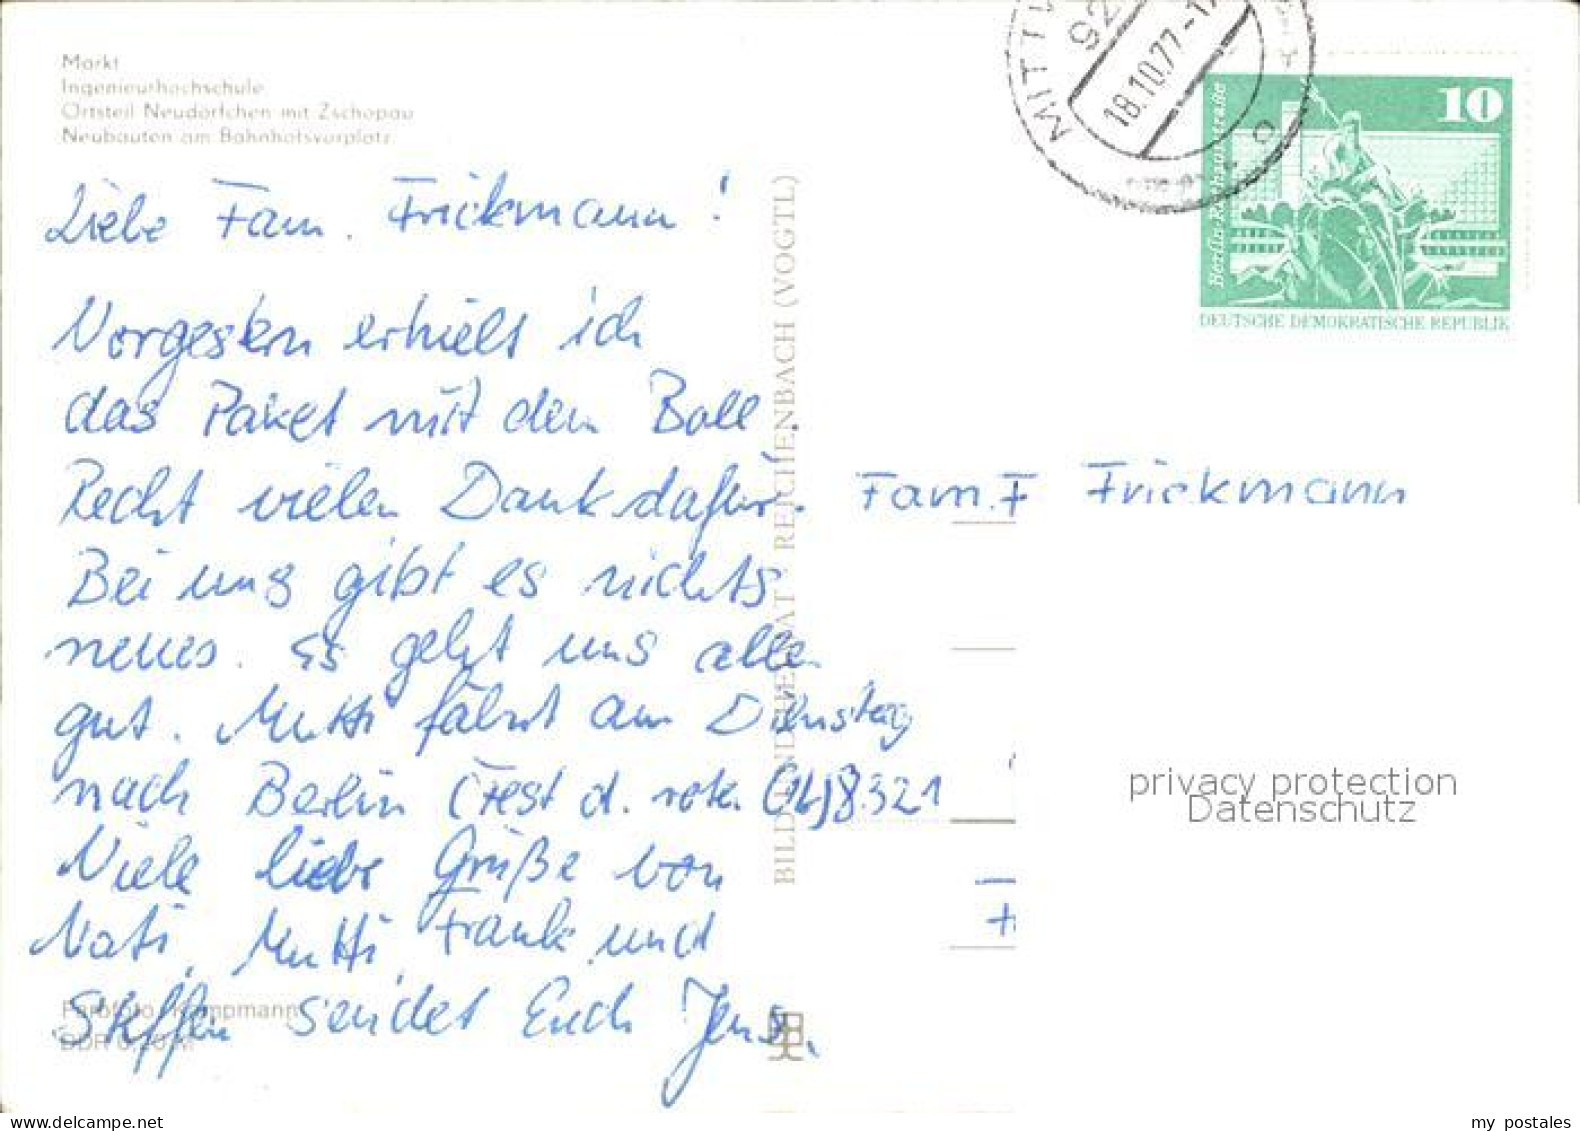 Markt
Ingenieurhochschule
Ortsteil Neudörfchen mit Zschopau
Neubauten am Bahnhofsvorplatz
MITTW
92
18.10.77-17
10
Berlin-Rathausstraße
DEUTSCHE DEMOKRATISCHE REPUBLIK
Liebe Fam. Frickmann!
Vorgestern erhielt ich
das Paket mit dem Ball.
Recht vielen Dank dafür.
Bei uns gibt es nichts
neues. Es geht uns allen
gut. Mutti fährt am Dienstag
nach Berlin (Fest d. roten
Viele liebe Grüße von
Vati, Mutti, Frank und
Steffen sendet Euch Jens.
BILD UND HEIMAT REICHENBACH (VOGTL)
Fam. F Frickmann
Farbfoto: Kampmann
DDR 0,20 M
privacy protection
Datenschutz
my postales